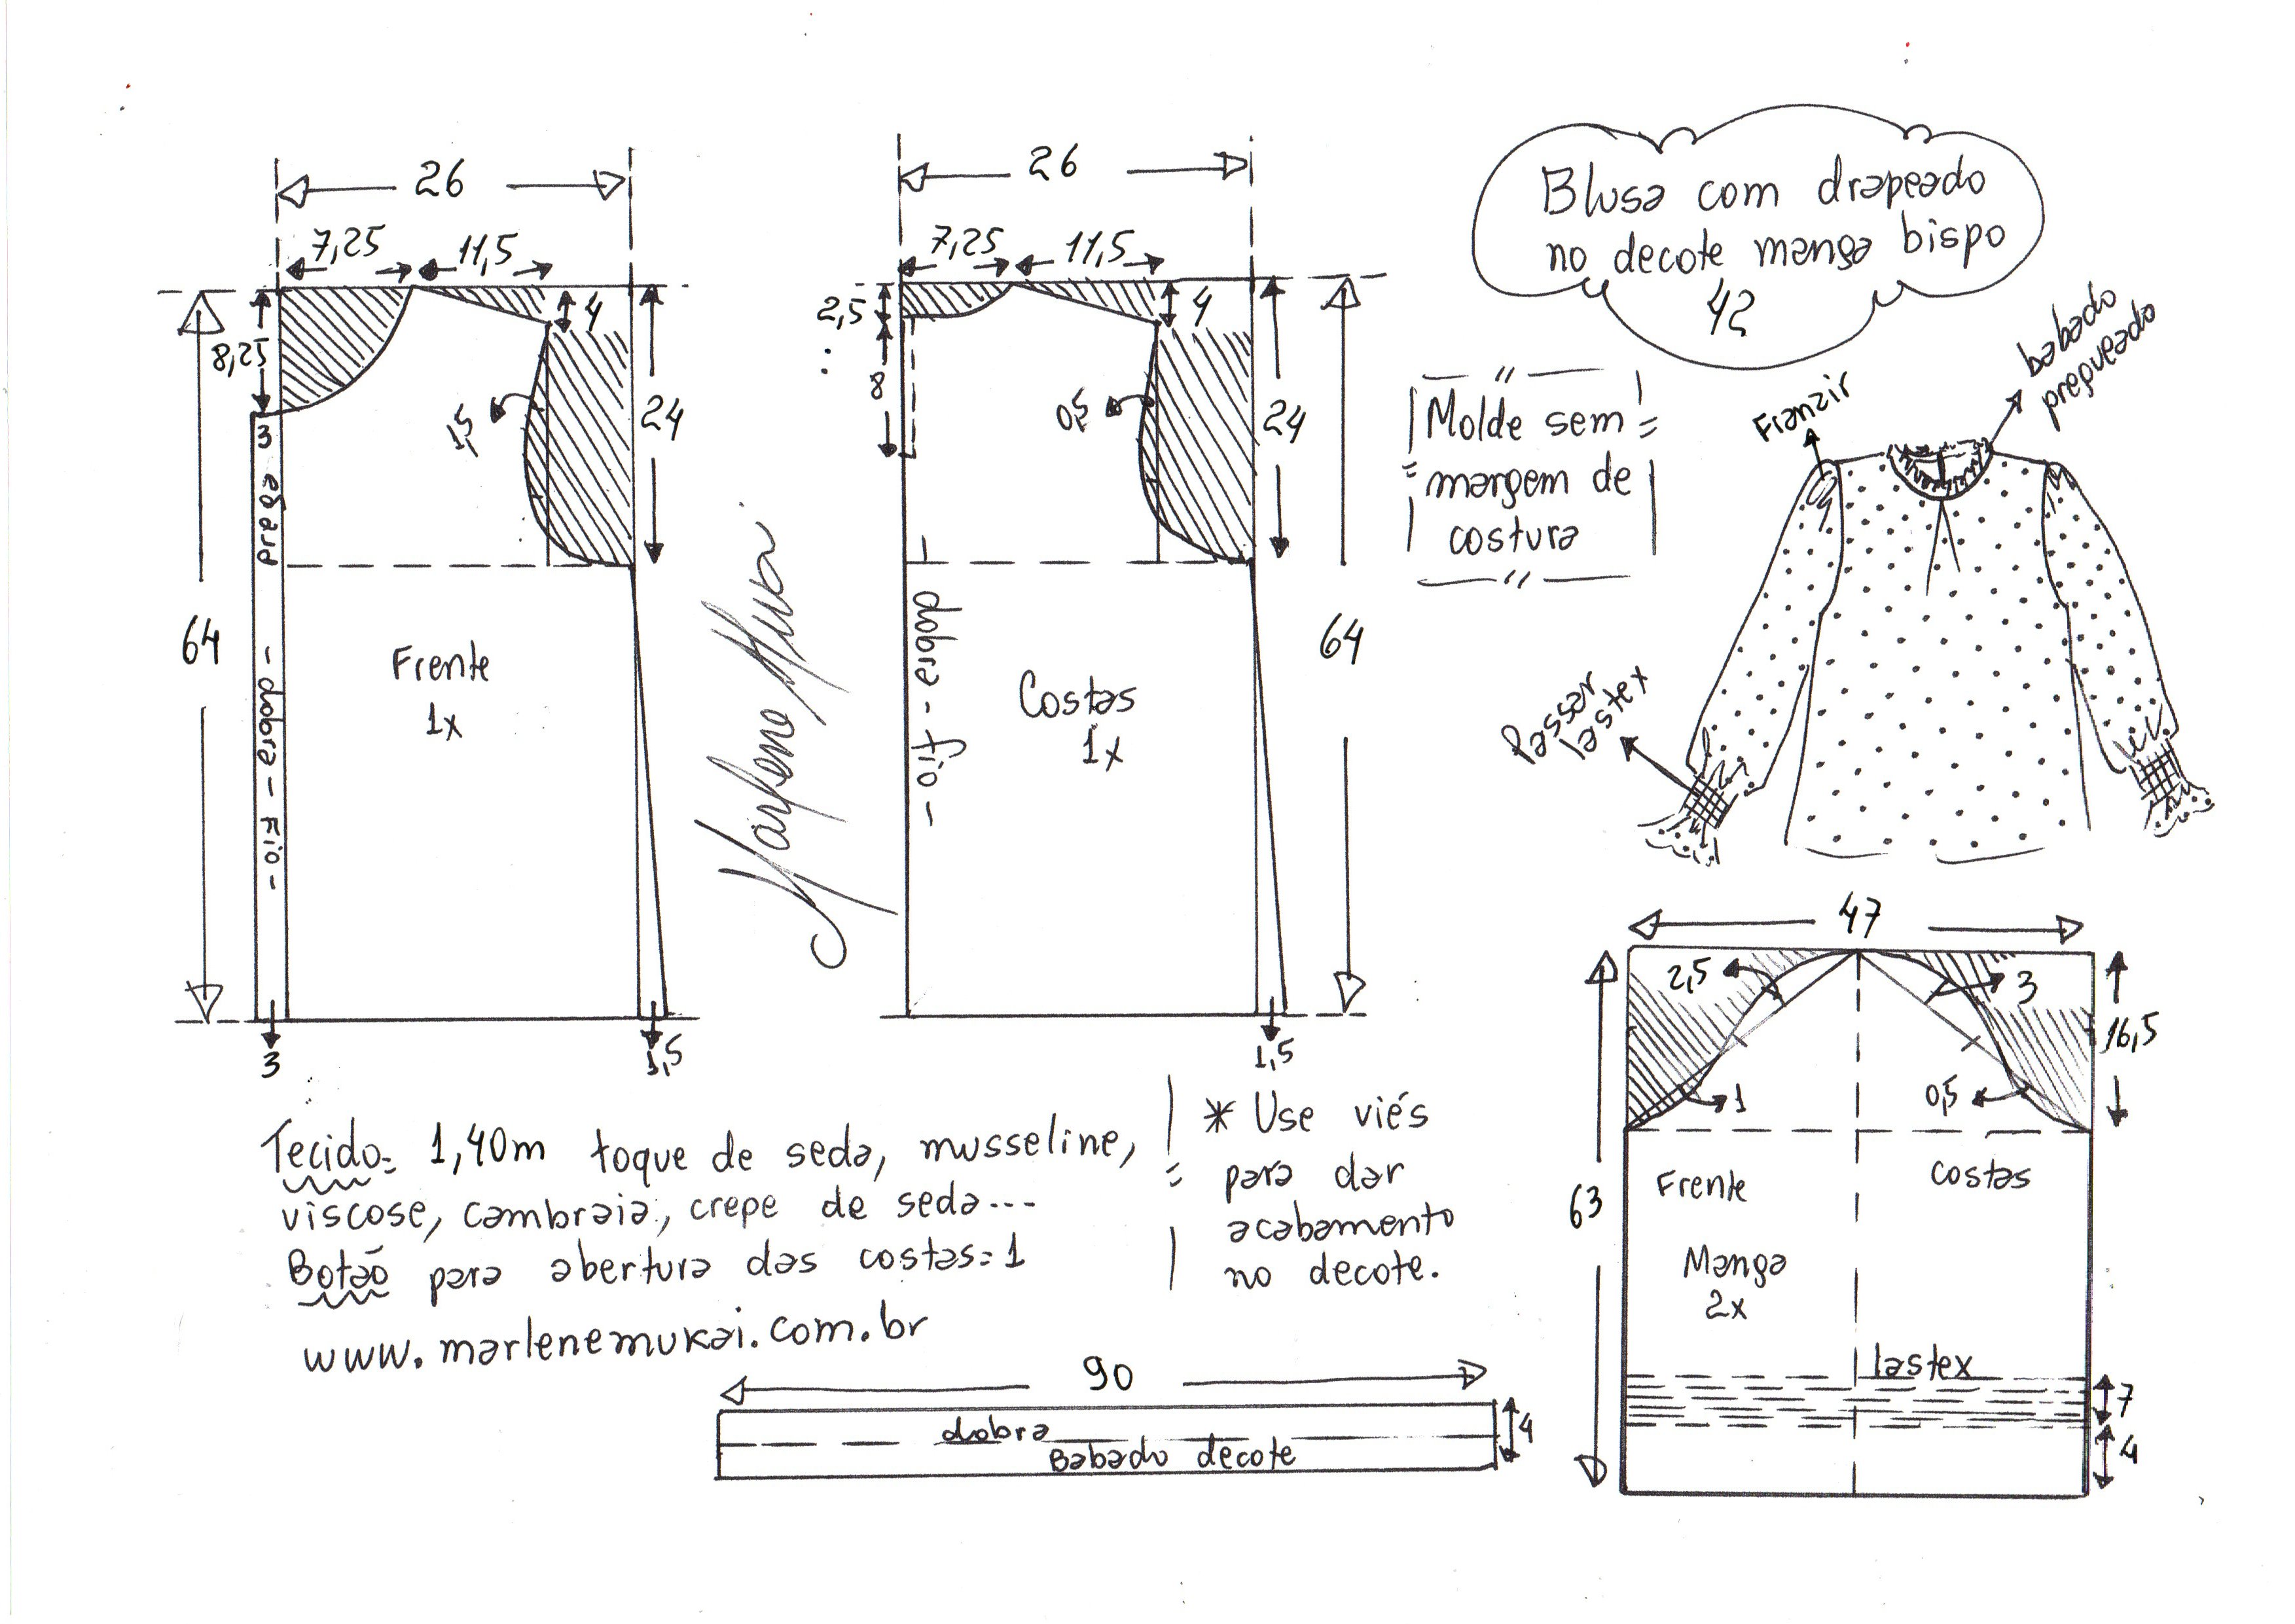 Blusa com drapeado
no decote manga bispo
42
26
7,25
11,5
4
8,25
24
3
prega
1,5
64
- dobra - Fio -
Frente
1x
3
1,5
Marlene Mukai
26
7,25
11,5
2,5
4
8
0,5
24
64
dobra - fio -
Costas
1x
1,5
Molde sem
margem de
costura
Franzir
babado
pregueado
Passar
lastex
47
2,5
3
16,5
1
0,5
63
Frente
costas
Manga
2x
lastex
7
4
Tecido= 1,40m toque de seda, musseline,
viscose, cambraia, crepe de seda...
Botão para abertura das costas=1
www.marlenemukai.com.br
* Use viés
para dar
acabamento
no decote.
90
dobra
Babado decote
4